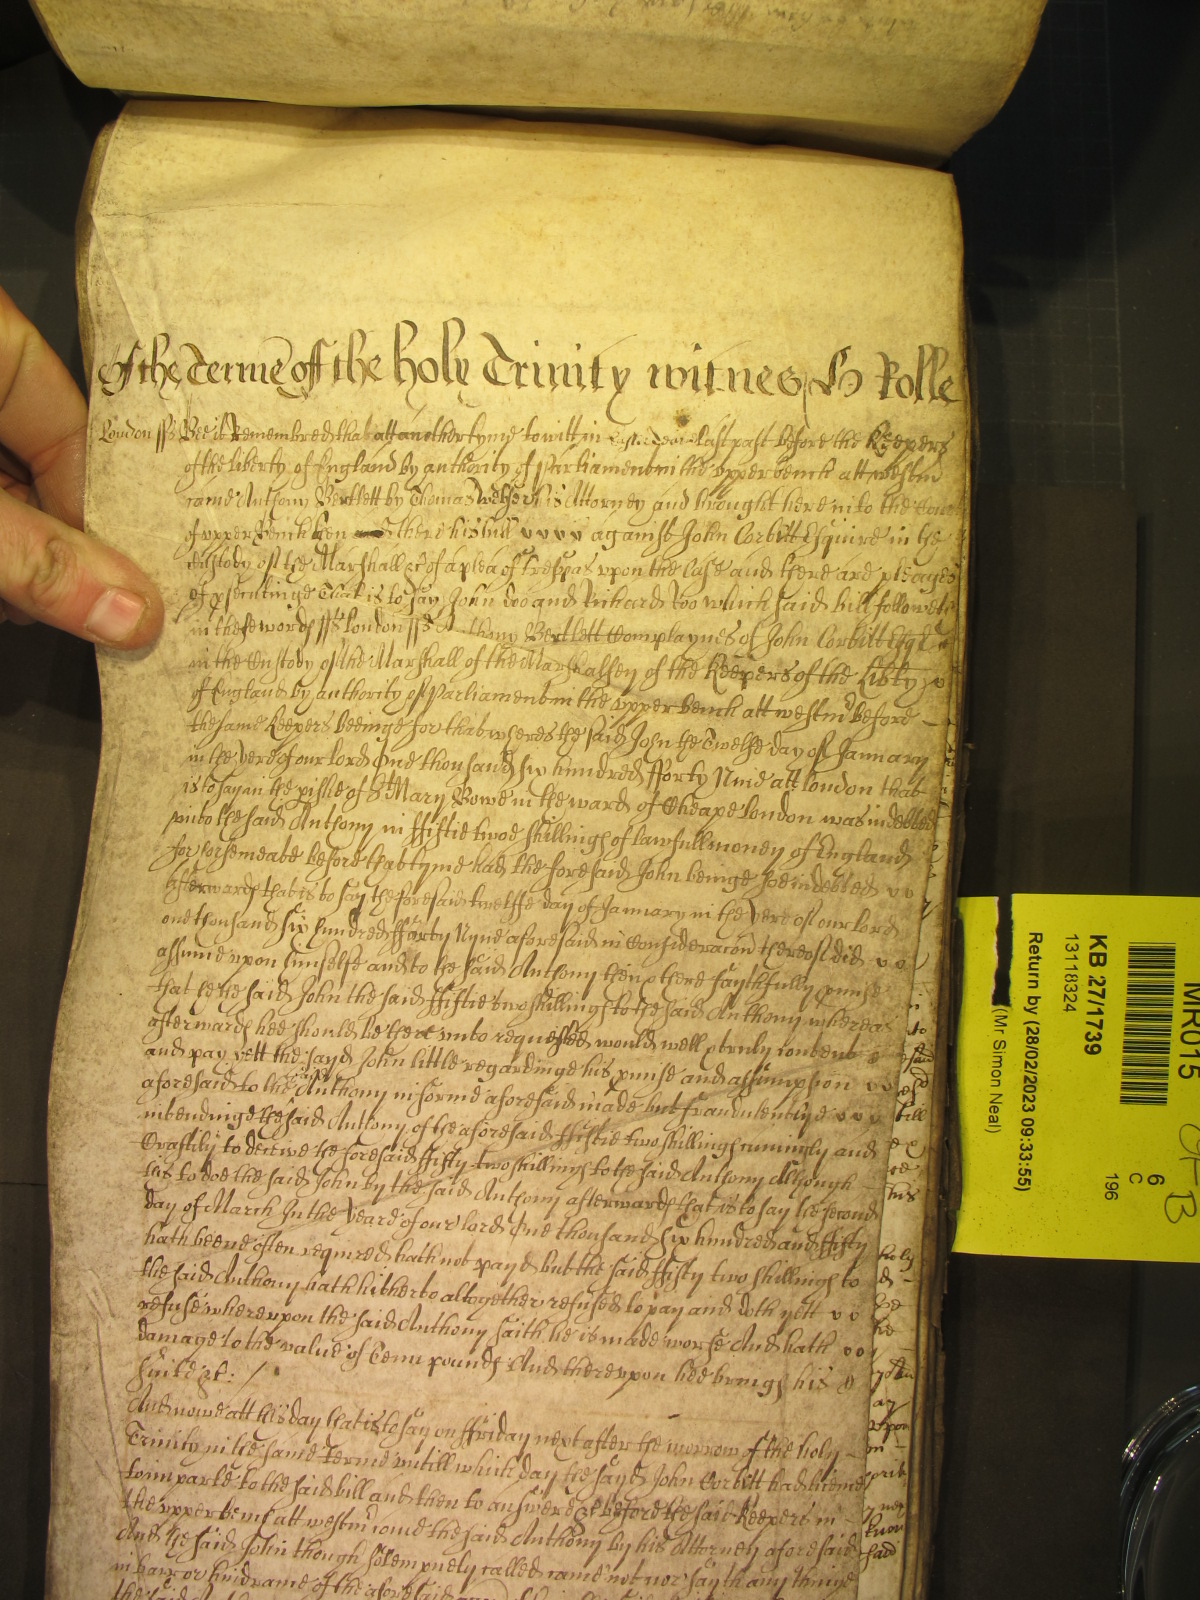 Of the Terme of the holy Trinity witnes H Rolle
London ss Bee it Remembred that att another tyme to witt in Easter Terme last past before the Keepers
of the liberty of England by authority of Parliament in the upper bench att westm
came Anthony Bertlett by Thomas his Attorney and brought here into the Court
of upper Bench then there his bill v v v v against John Corbitt Esquire in the
custody of the Marshall &c of a plea of trespas upon the Case and there are pledges
of psecutinge That is to say John Doo and Richard Roo which said bill followeth
in these words ss London ss Anthony Bertlett Complaynes of John Corbitt Esqr
in the Custody of the Marshall of the Marshalsey of the Keepers of the Libty
of England by authority of Parliament in the upper Bench att westm before
the same Keepers beeinge for that wheras the said John the Twelfe day of January
in the yere of our lord One thousand six hundred fforty Nine att London that
is to say in the pishe of St Mary Bowe in the ward of Cheape London was indebted
unto the said Anthony in ffiftie twoe shillings of lawfull money of England
for horsemeate before that tyme had the foresaid John beinge soe indebted v v
afterwards that is to say the foresaid twelffe day of January in the yere of our lord
one thousand six hundred fforty Nyne aforesaid in Consideracon thereof did v v
assume upon himselfe and to the said Anthony then & there faythfully pmise
that he the said John the said ffiftie two shillings to the said Anthony whereas
afterwards hee should be thereunto requested would well & truly content
and pay yett the sayd John little regardinge his pmise and assumpsion v v
aforesaid to the said Anthony in forme aforesaid made but fraudulently v v v
intendinge the said Anthony of the aforesaid ffiftie two shillings cunningly and
Craftily to deceive the foresaid ffifty two shillings to the said Anthony Although
this to doe the said John by the said Anthony afterwards that is to say the second
day of March In the yeare of our lord One thousand six hundred and ffifty
hath beene often required hath not payd but the said ffifty two shillings to
the said Anthony hath hitherto altogether refused to pay and doth yett v v
refuse whereupon the said Anthony saith he is made worse And hath v v
damage to the value of Tenn pounds And thereupon hee brings his
suite &c: /
And nowe att this day that is to say on ffriday next after the morrow of the holy
Trinity in the same Terme untill which day the sayd John Corbitt had licence
to imparle to the said bill and then to answere &c before the said Keepers in
the upper bench att westm came the said Anthony by his Attorney aforesaid
And the said John though solempnely called came not nor sayth any thinge
in barr or hindrance of the aforesaid
MR015
KB 27/1739
13118324
6
C
196
Return by (28/02/2023 09:33:55)
(Mr Simon Neal)